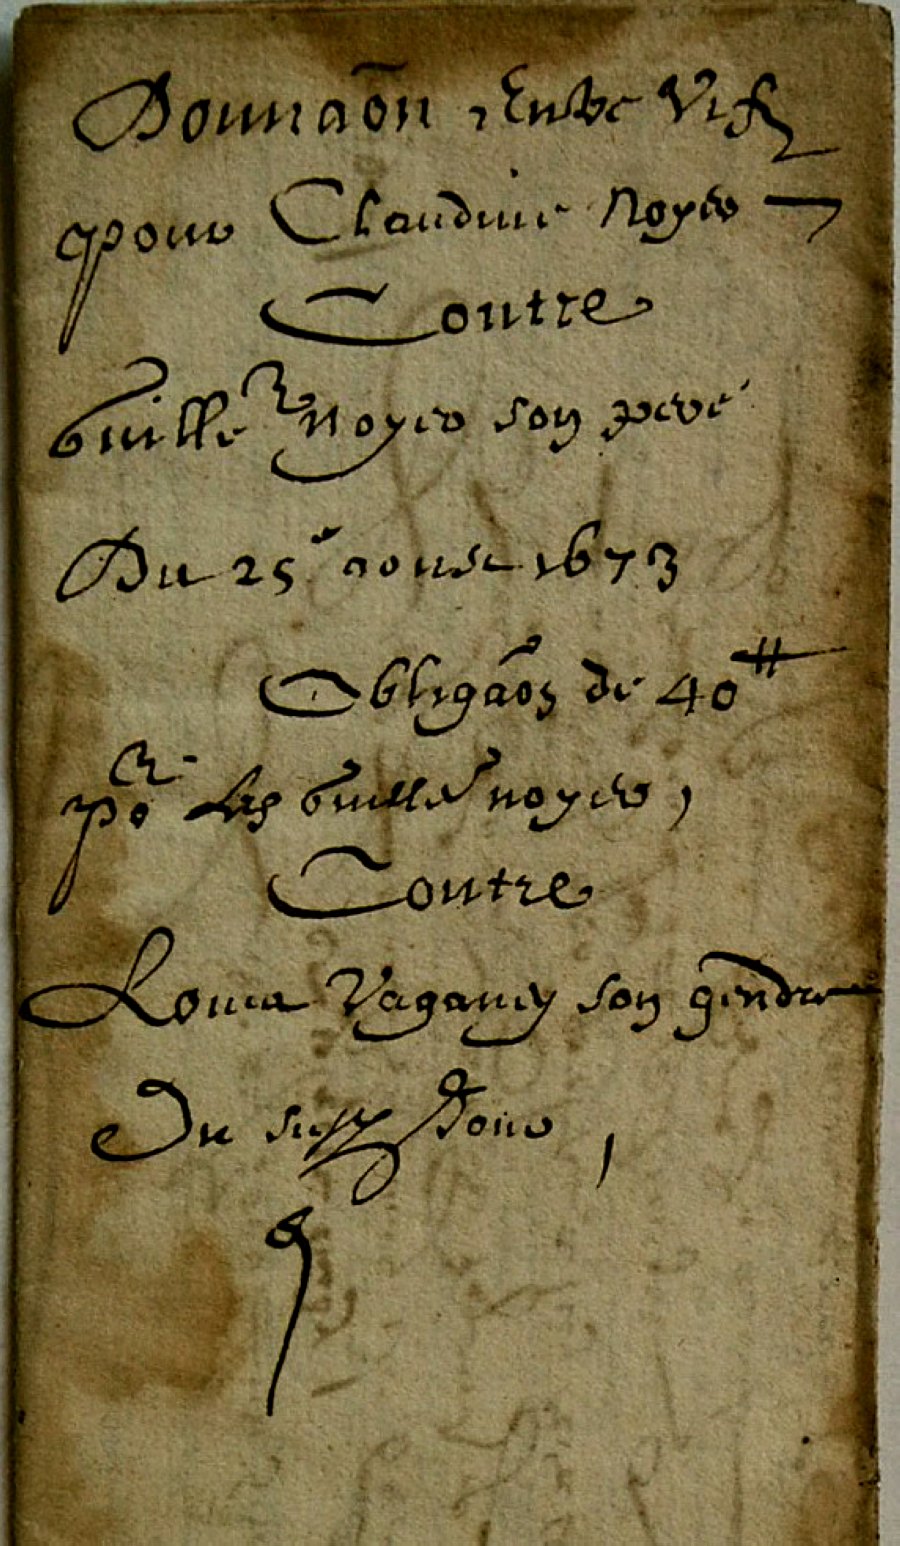 Donnaōn Entre Vifz
pour Claudine Noyer
Contre
Guille Noyer son pere
Du 25e aoust 1673
Obligaōn de 40#
po Led Guille noyer,
Contre
Louis Vaganey son gendre
Du susd Jour,